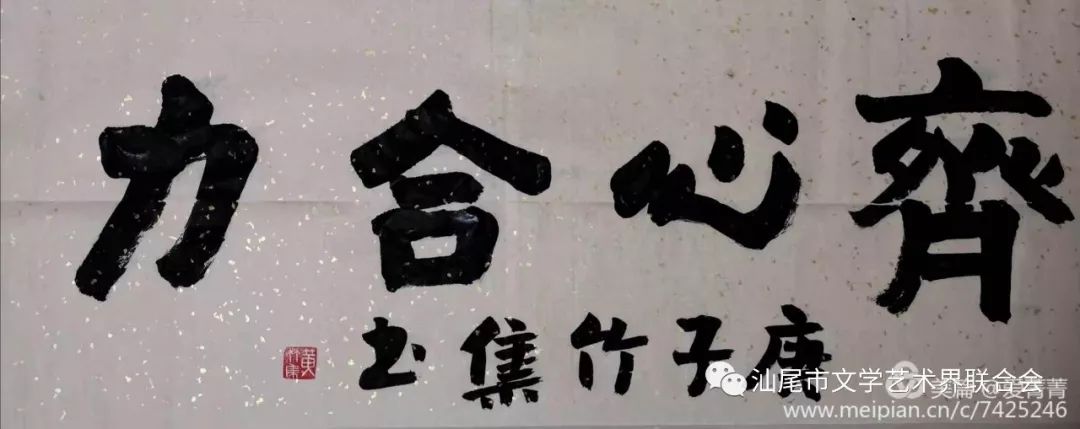 齊心合力
庚子竹集书
黄竹集
汕尾市文学艺术界联合会
美篇@爱菁菁
www.meipian.cn/c/7425246